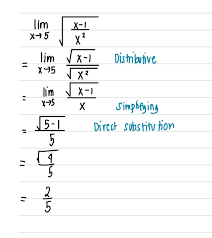 lim x→5 √(x-1 / x²)
= lim x→5 √(x-1) / √(x²) Distributive
= lim x→5 √(x-1) / x Simplifying
= √(5-1) / 5 Direct substitution
= √4 / 5
= 2 / 5